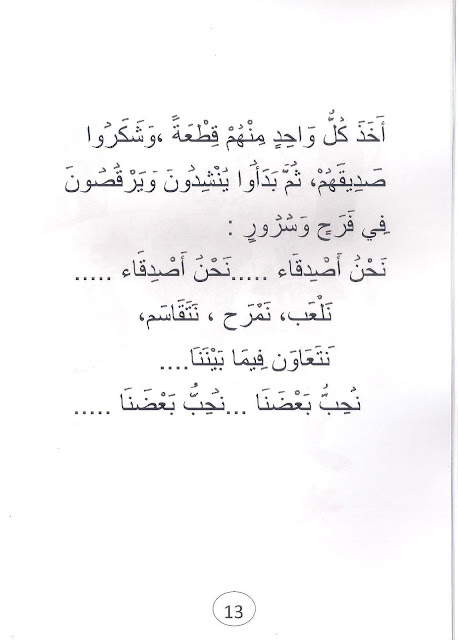 أَخَذَ كُلُّ وَاحِدٍ مِنْهُمْ قِطْعَةً ،وَشَكَرُوا
صَدِيقَهُمْ، ثُمَّ بَدَأُوا يُنْشِدُونَ وَيَرْقُصُونَ
فِي فَرَحٍ وَسُرُورٍ :
نَحْنُ أَصْدِقَاء .....نَحْنُ أَصْدِقَاء .....
نَلْعَب، نَمْرَح ، نَتَقَاسَم،
نَتَعَاوَن فِيمَا بَيْنَنَا....
نُحِبُّ بَعْضَنَا ...نُحِبُّ بَعْضَنَا .....
13